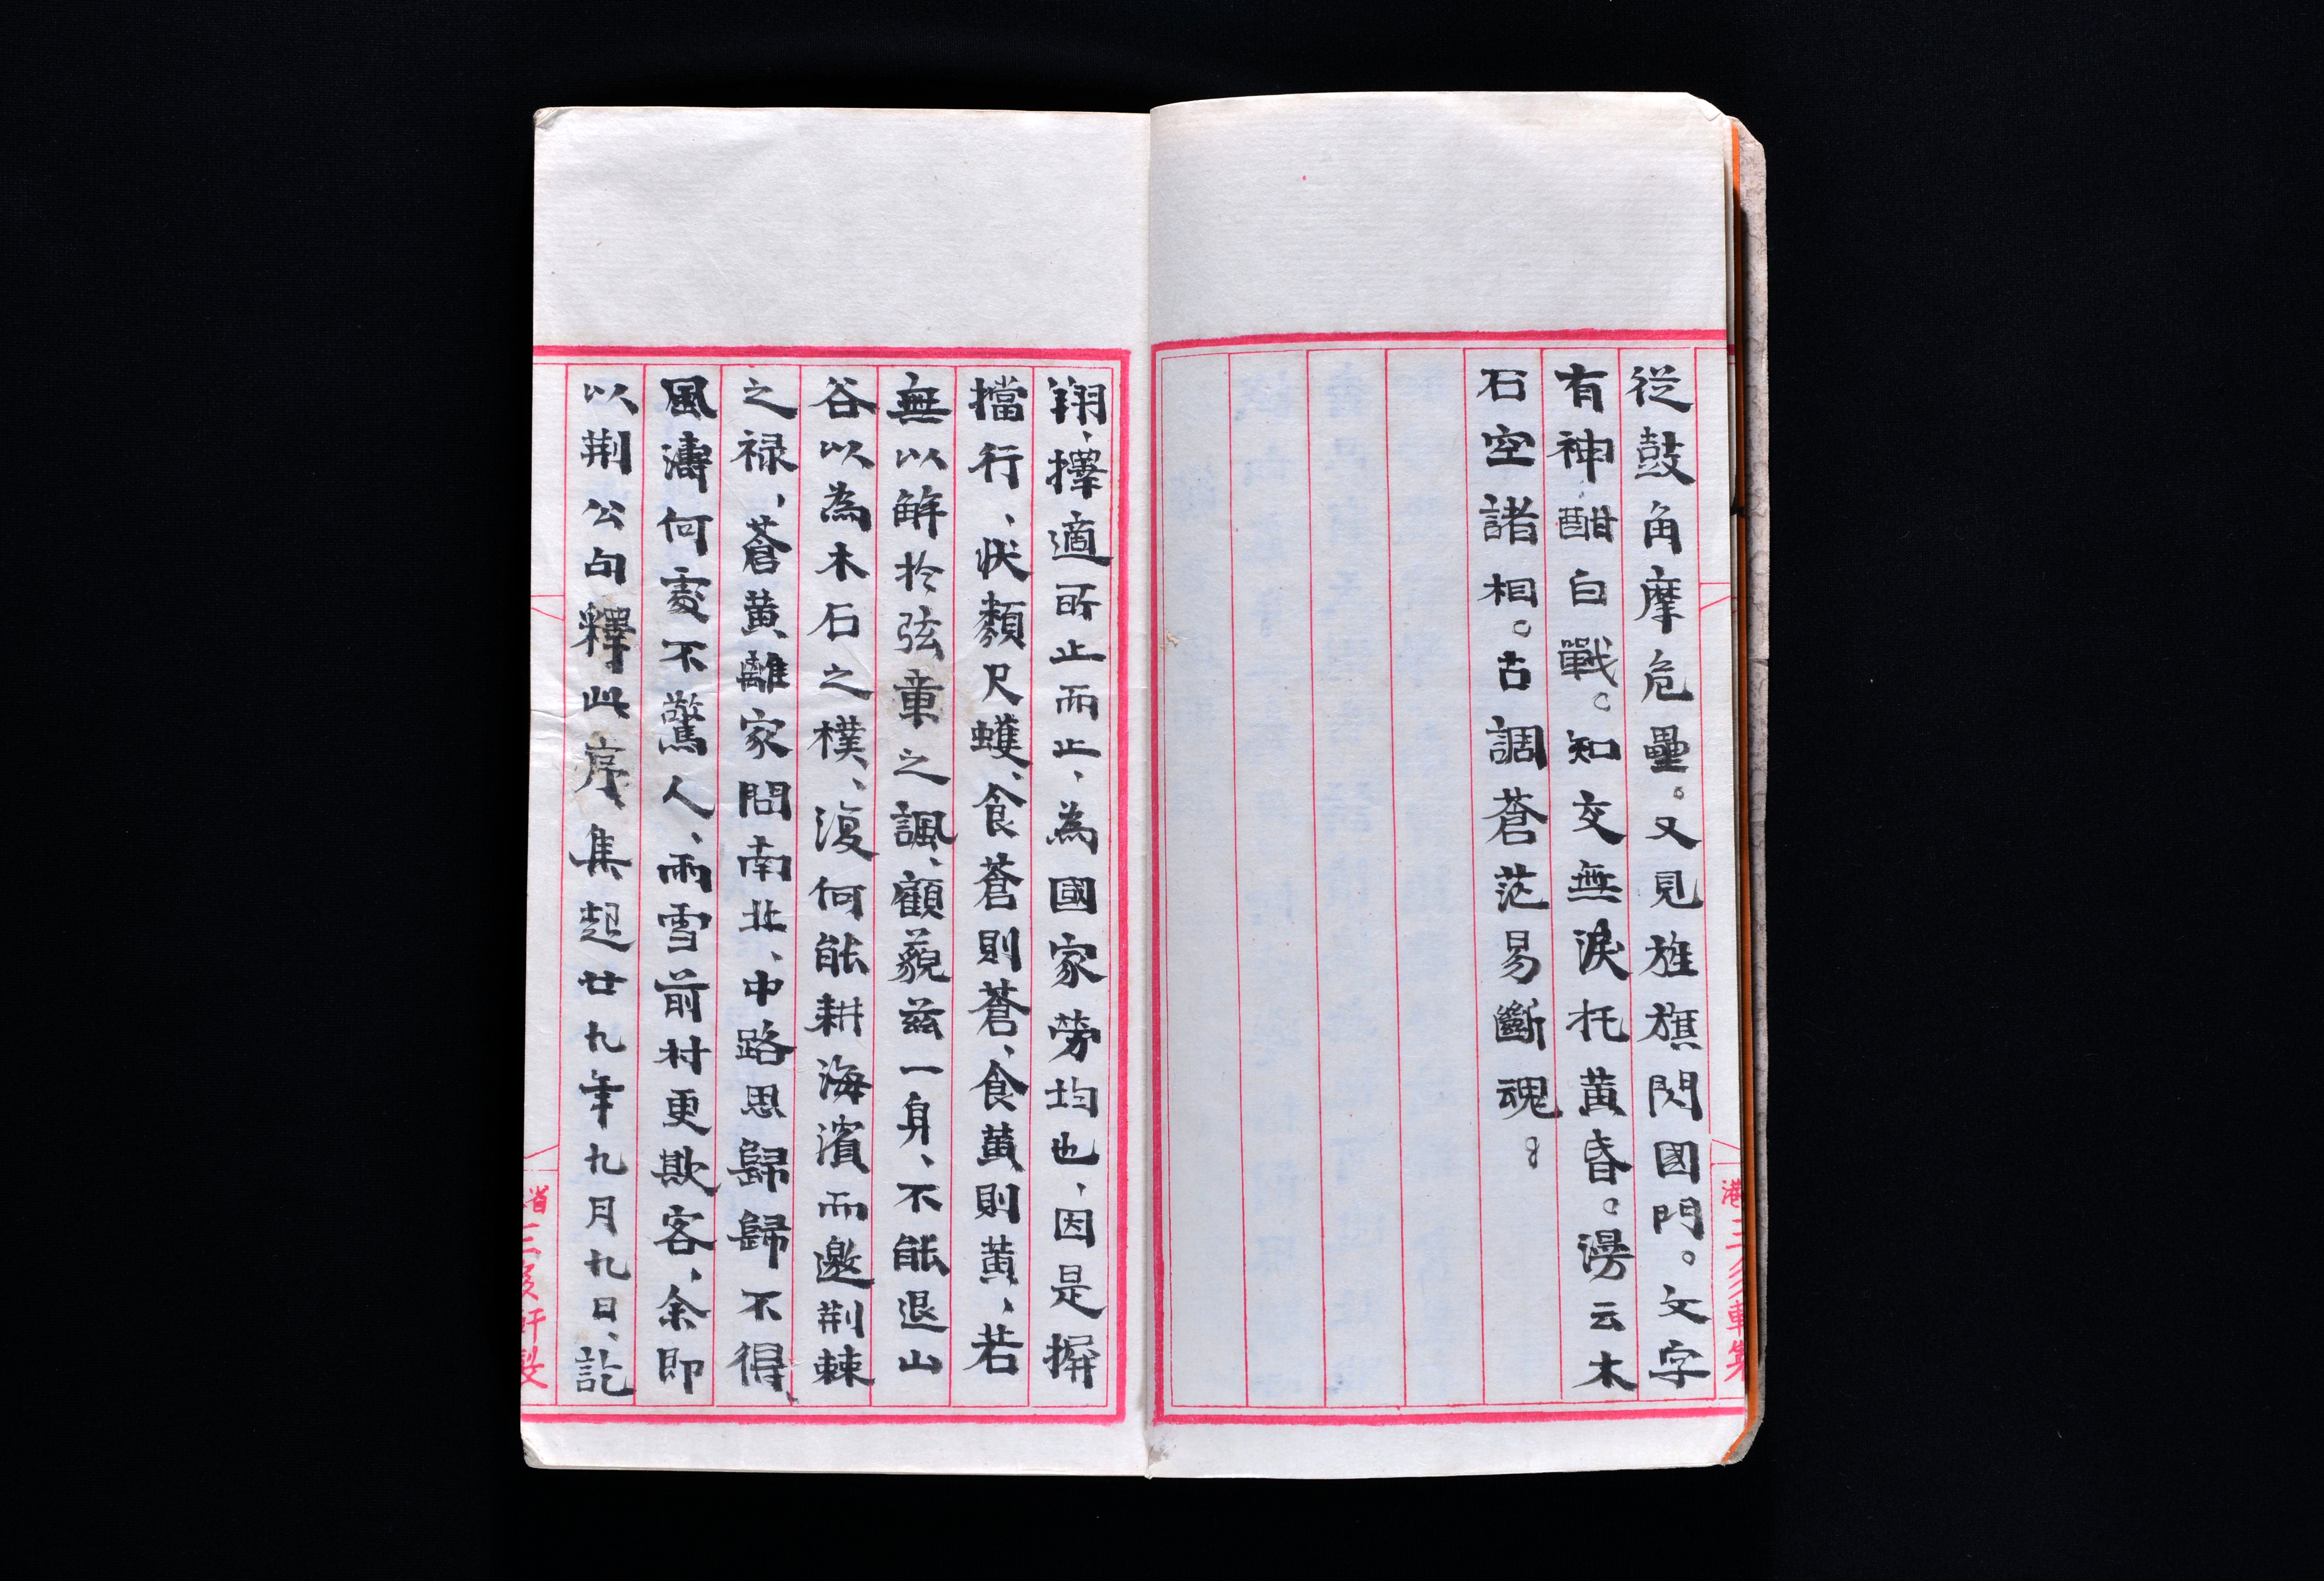 從鼓角摩危壘。又見旌旗閃國門。文字
有神酣白戰。知交無淚托黃昏。漫云木
石空諸相。古調蒼茫易斷魂。
翔、擇適所止而止、為國家勞均也、因是摒
擋行、狀類尺蠖、食蒼則蒼、食黃則黃、若
無以解於弦章之諷、顧藐茲一身、不能退山
谷以為木石之樸、復何能耕海濱而邀荆棘
之禄、蒼黃離家問南北、中路思歸歸不得、
風濤何處不驚人、雨雪前村更欺客、余即
以荆公句釋此序、集起廿九年九月九日、訖
港三多軒製
省三多軒製